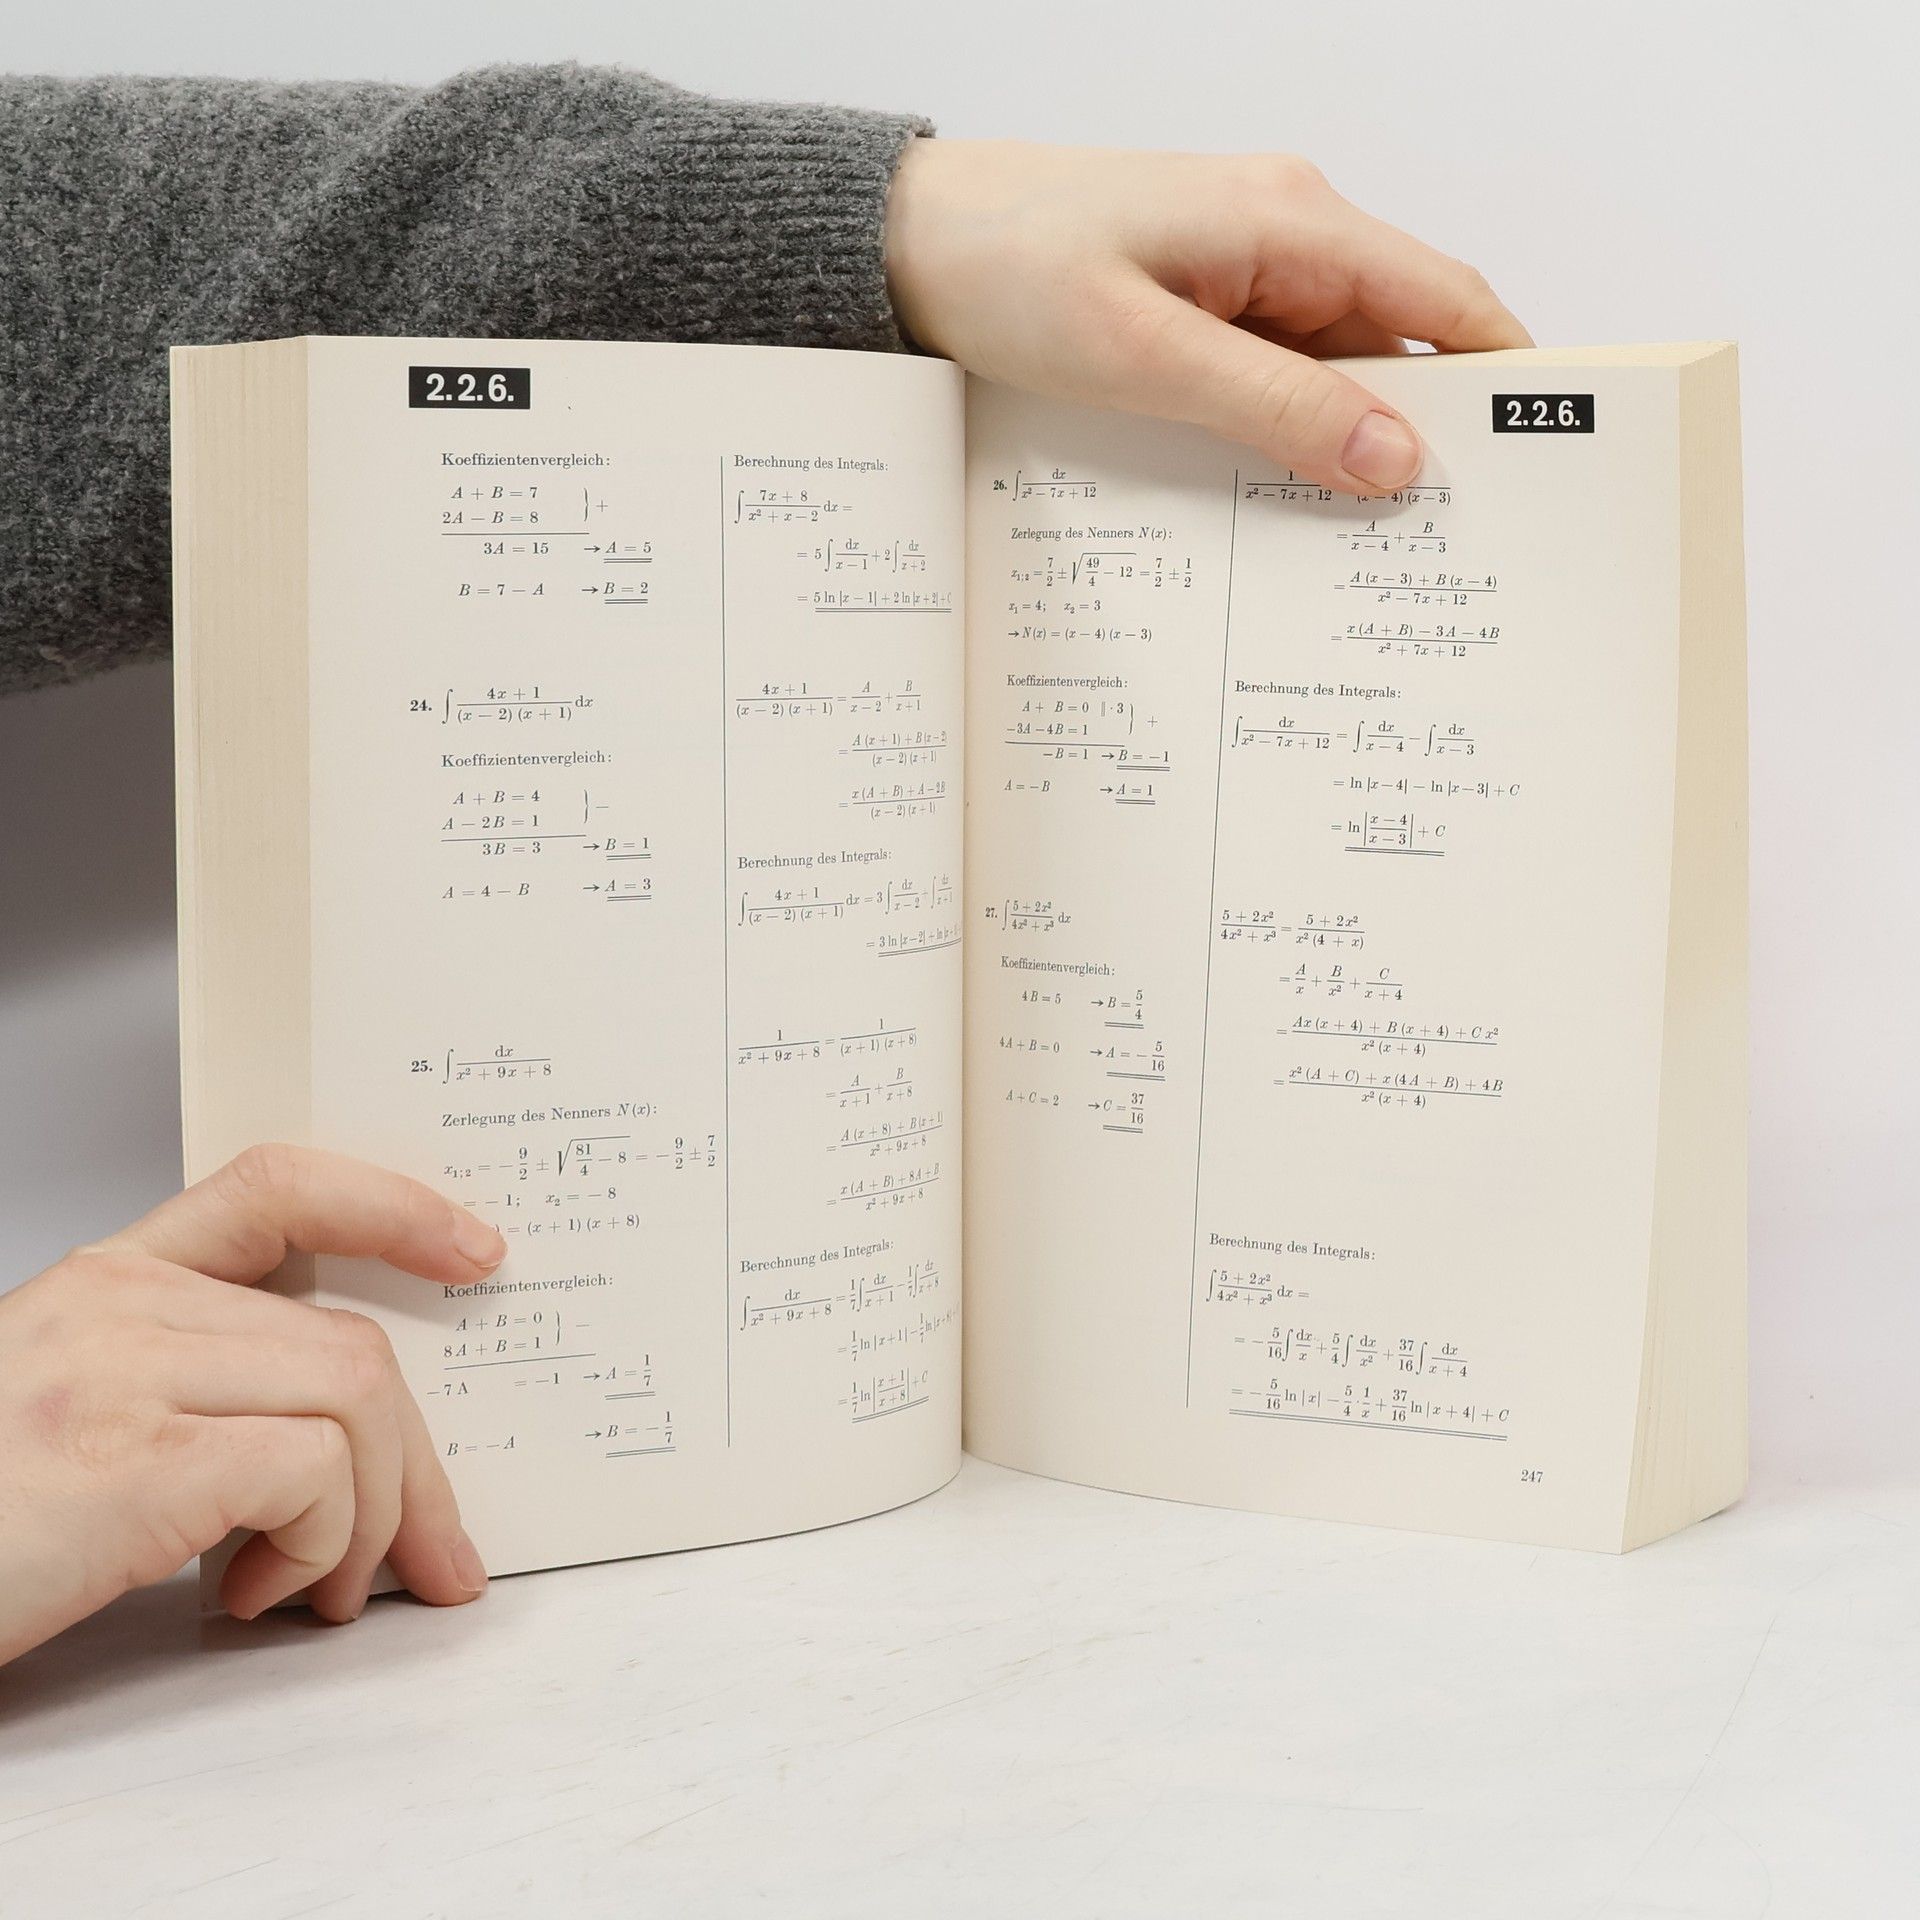 2.2.6.
Koeffizientenvergleich:
A + B = 7
2A − B = 8 } +
3A = 15 → A = 5
B = 7 − A → B = 2
Berechnung des Integrals:
∫ (7x + 8)/(x² + x − 2) dx =
= 5 ∫ dx/(x − 1) + 2 ∫ dx/(x + 2)
= 5 ln |x − 1| + 2 ln |x + 2| + C
24. ∫ (4x + 1)/((x − 2) (x + 1)) dx
Koeffizientenvergleich:
A + B = 4
A − 2B = 1 } −
3B = 3 → B = 1
A = 4 − B → A = 3
(4x + 1)/((x − 2) (x + 1)) = A/(x − 2) + B/(x + 1)
= (A (x + 1) + B (x − 2))/((x − 2) (x + 1))
= (x (A + B) + A − 2B)/((x − 2) (x + 1))
Berechnung des Integrals:
∫ (4x + 1)/((x − 2) (x + 1)) dx = 3 ∫ dx/(x − 2) + ∫ dx/(x + 1)
= 3 ln |x − 2| + ln |x +
25. ∫ dx/(x² + 9x + 8)
Zerlegung des Nenners N (x):
x₁;₂ = − 9/2 ± √(81/4 − 8) = − 9/2 ± 7/2
= − 1; x₂ = − 8
) = (x + 1) (x + 8)
Koeffizientenvergleich:
A + B = 0
8 A + B = 1 } −
−7 A = −1 → A = 1/7
B = − A → B = − 1/7
1/(x² + 9x + 8) = 1/((x + 1) (x + 8))
= A/(x + 1) + B/(x + 8)
= (A (x + 8) + B (x + 1))/(x² + 9x + 8)
= (x (A + B) + 8A + B)/(x² + 9x + 8)
Berechnung des Integrals:
∫ dx/(x² + 9x + 8) = 1/7 ∫ dx/(x + 1) − 1/7 ∫ dx/(x + 8)
= 1/7 ln |x + 1| − 1/7 ln |x + 8|
= 1/7 ln |(x + 1)/(x + 8)| + C
2.2.6.
26. ∫ dx/(x² − 7x + 12)
Zerlegung des Nenners N (x):
x₁;₂ = 7/2 ± √(49/4 − 12) = 7/2 ± 1/2
x₁ = 4; x₂ = 3
→ N (x) = (x − 4) (x − 3)
Koeffizientenvergleich:
A + B = 0 ‖ · 3
−3A − 4B = 1 } +
−B = 1 → B = −1
A = −B → A = 1
1/(x² − 7x + 12) (x − 4) (x − 3)
= A/(x − 4) + B/(x − 3)
= (A (x − 3) + B (x − 4))/(x² − 7x + 12)
= (x (A + B) − 3A − 4B)/(x² + 7x + 12)
Berechnung des Integrals:
∫ dx/(x² − 7x + 12) = ∫ dx/(x − 4) − ∫ dx/(x − 3)
= ln |x − 4| − ln |x − 3| + C
= ln |(x − 4)/(x − 3)| + C
27. ∫ (5 + 2x²)/(4x² + x³) dx
Koeffizientenvergleich:
4B = 5 → B = 5/4
4A + B = 0 → A = − 5/16
A + C = 2 → C = 37/16
(5 + 2x²)/(4x² + x³) = (5 + 2x²)/(x² (4 + x))
= A/x + B/x² + C/(x + 4)
= (Ax (x + 4) + B (x + 4) + C x²)/(x² (x + 4))
= (x² (A + C) + x (4A + B) + 4B)/(x² (x + 4))
Berechnung des Integrals:
∫ (5 + 2x²)/(4x² + x³) dx =
= − 5/16 ∫ dx/x + 5/4 ∫ dx/x² + 37/16 ∫ dx/(x + 4)
= − 5/16 ln |x| − 5/4 · 1/x + 37/16 ln |x + 4| + C
247